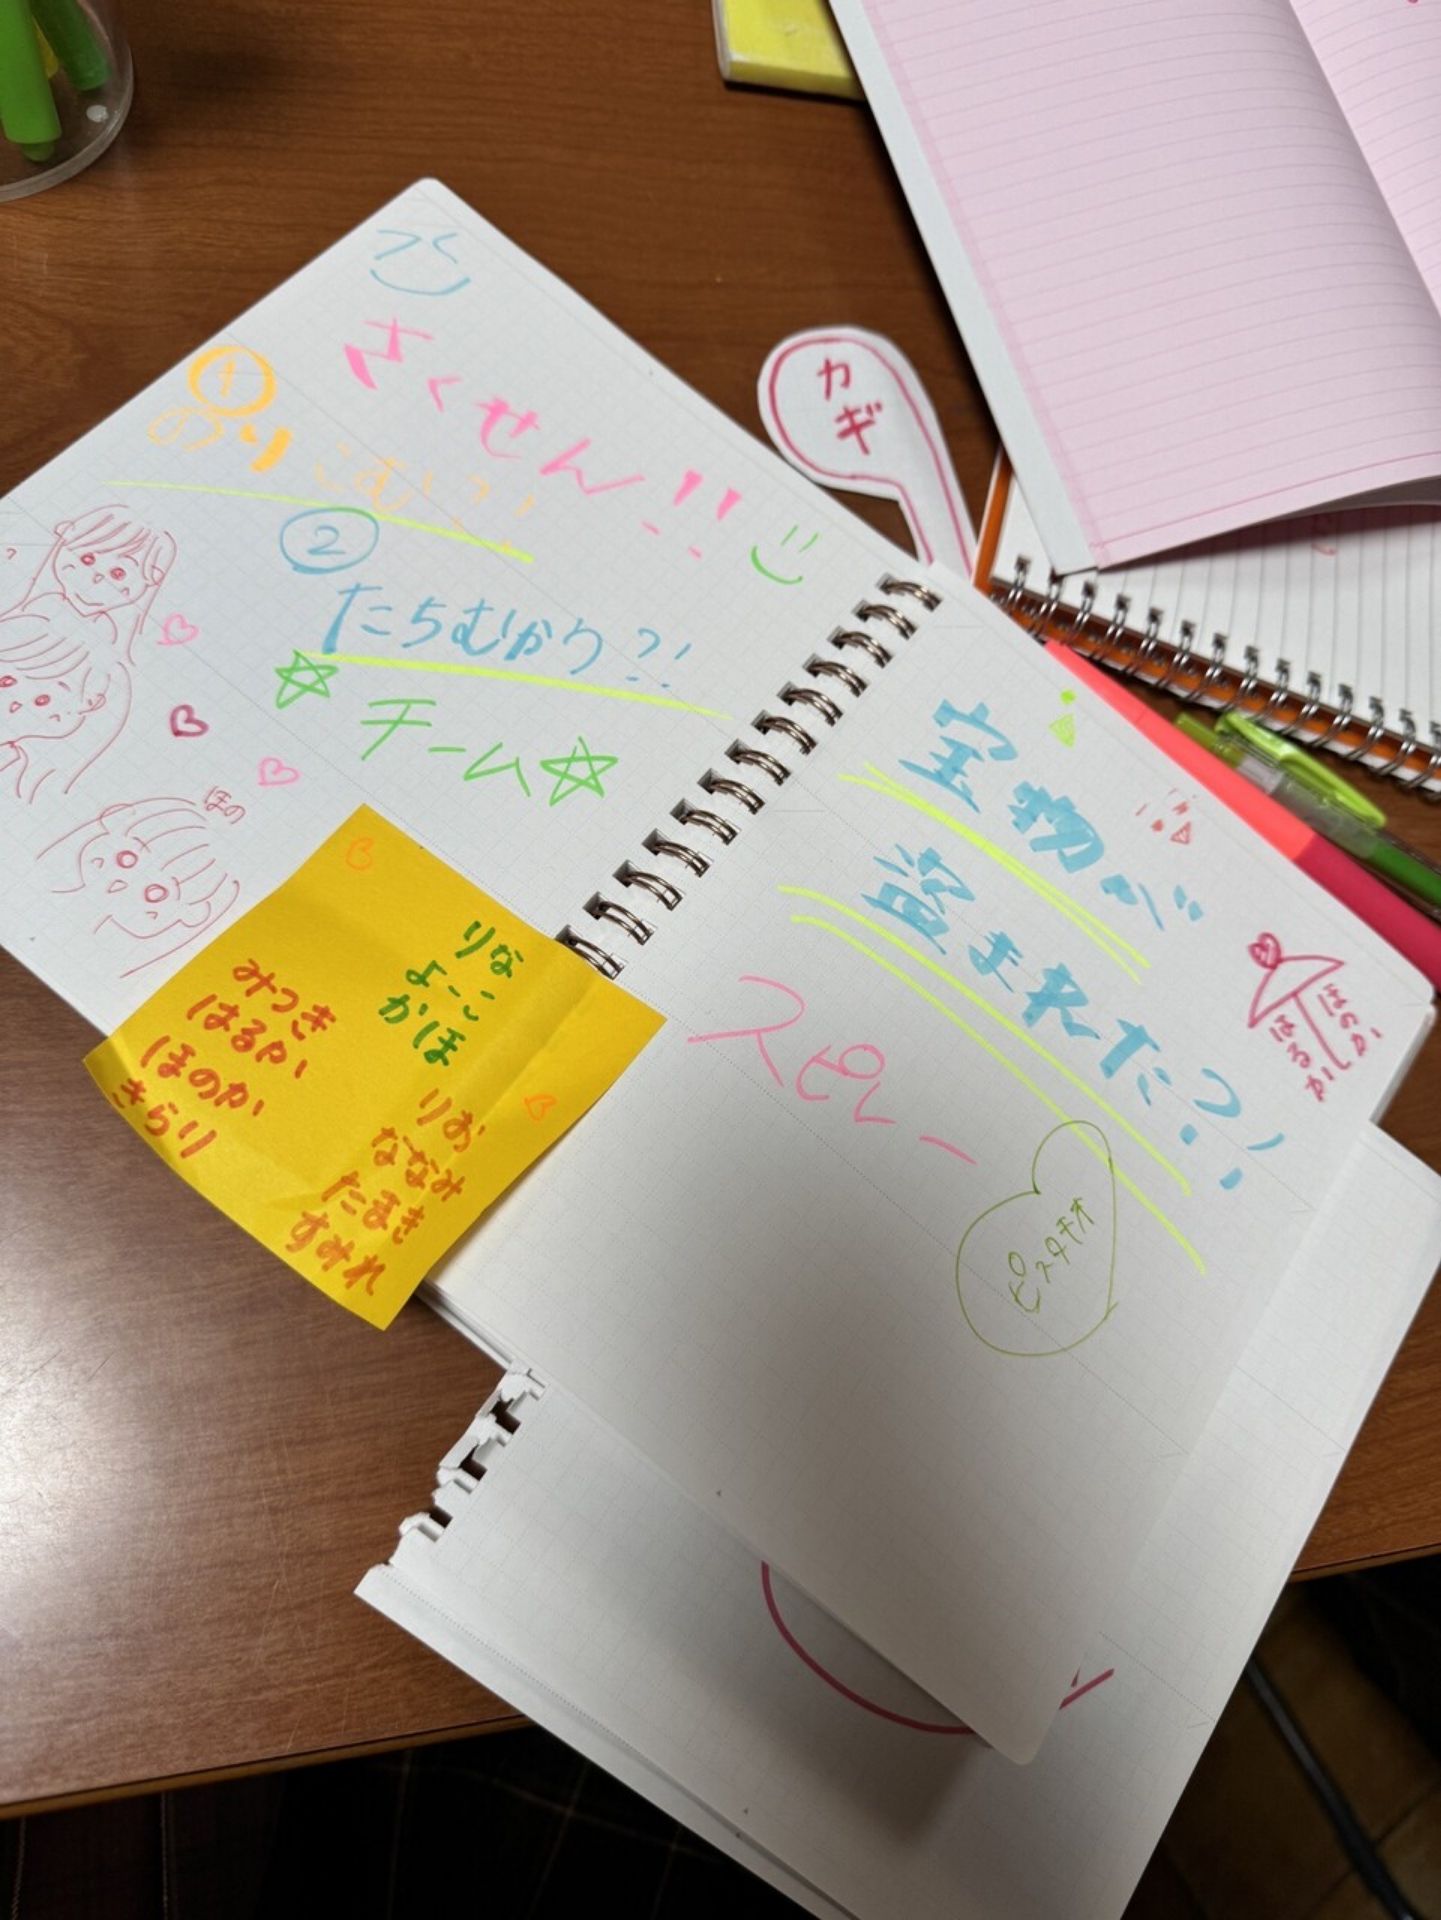 さくせん!!
①
のりこむ!?
②
たちむかう?!
☆チーム☆
ほの
りな
よーこ
かほ
みつき
はるか
ほのか
きらり
りお
ななみ
たまき
すみれ
カギ
宝物が
盗まれた?!
スピレー
ピスタチオ
ほのか
はるか